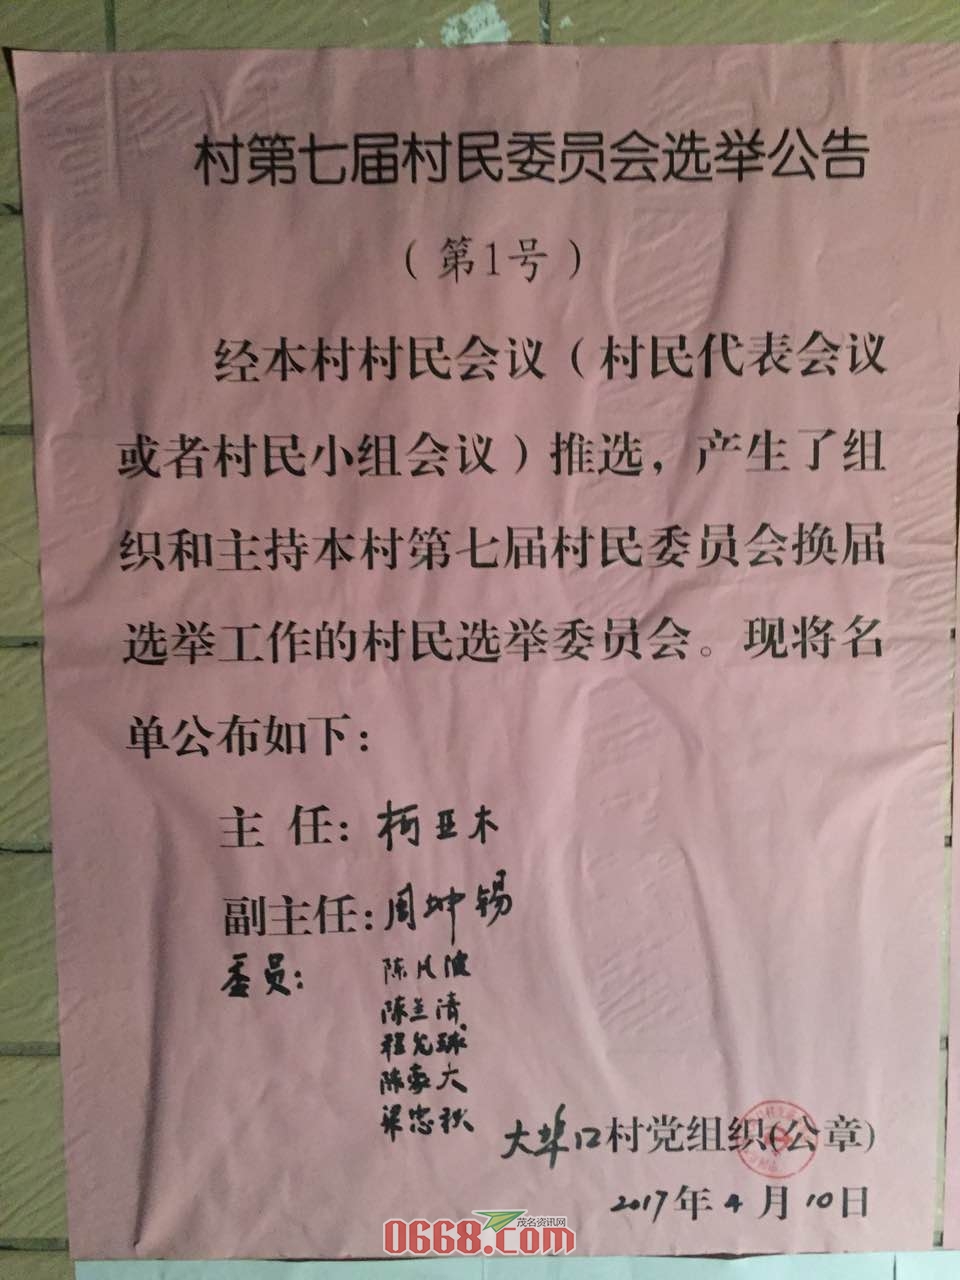 村第七届村民委员会选举公告
（第1号）
经本村村民会议（村民代表会议
或者村民小组会议）推选，产生了组
织和主持本村第七届村民委员会换届
选举工作的村民选举委员会。现将名
单公布如下：
主 任：柯亚木
副主任：周坤锡
委员： 陈凤波
陈兰清
程允球
陈豪大
梁忠秋
大埠口村党组织(公章)
2017年4月10日
茂名资讯网
0668.com